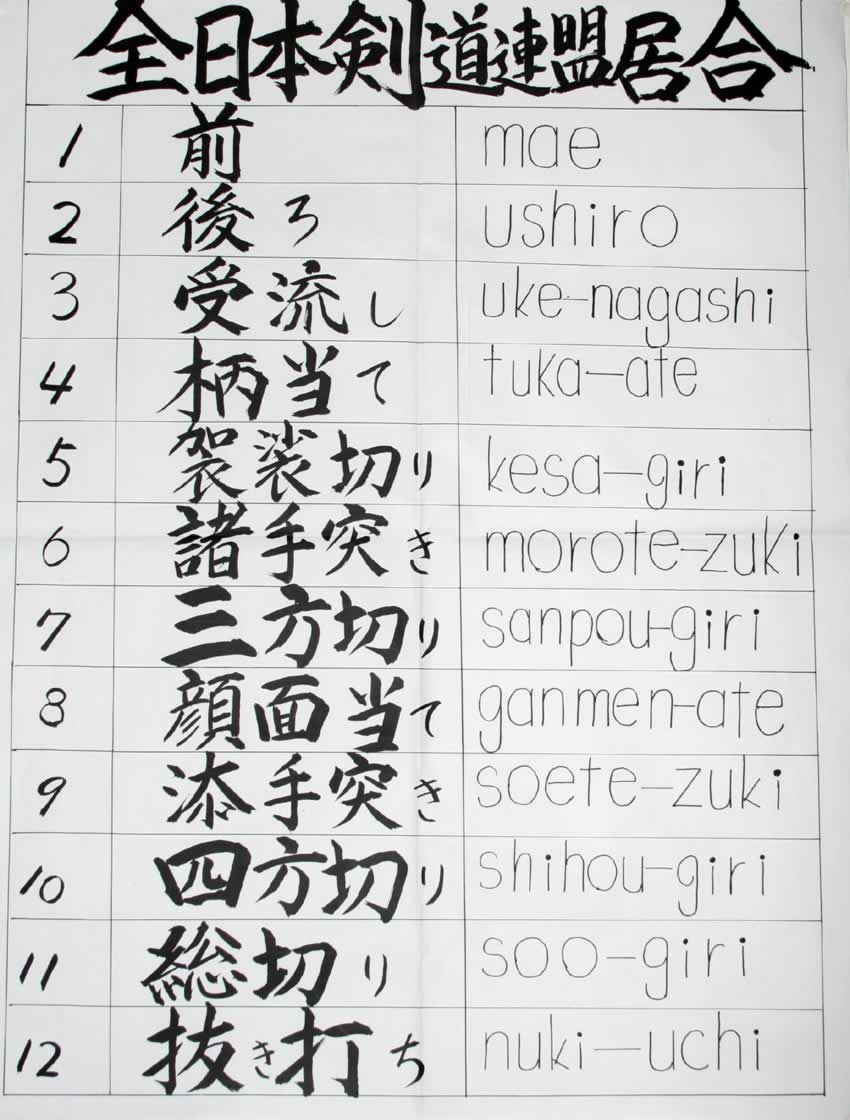 全日本剣道連盟居合
1 前 mae
2 後ろ ushiro
3 受流し uke-nagashi
4 柄当て tuka-ate
5 袈裟切り kesa-giri
6 諸手突き morote-zuki
7 三方切り sanpou-giri
8 顔面当て ganmen-ate
9 添手突き soete-zuki
10 四方切り shihou-giri
11 総切り soo-giri
12 抜き打ち nuki-uchi